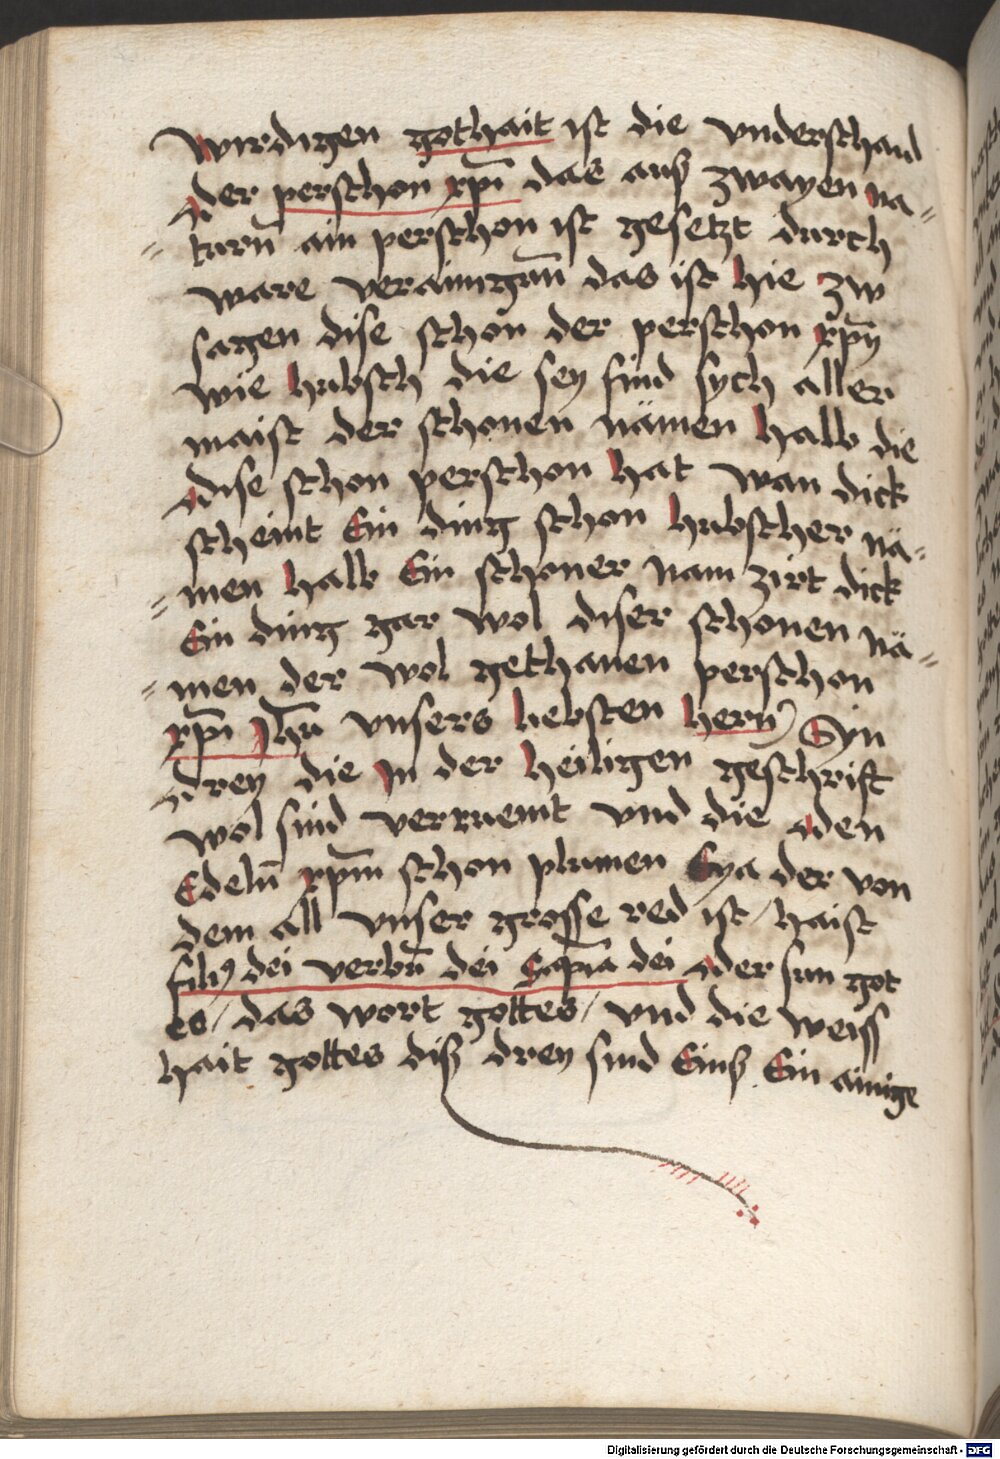 wirdigen gothait ist die vnderschaid
der perschon xpī das auß zwayen na=
=turn̄ ain perschon ist gesetzt durch
ware verainigūn das ist hie zw
sagen dise schön der perschon xpȳ
wie hubsch die sey sind sych aller
maist der schonen nämen halb die
dise schon perschon hat wan dick
scheint Ein ding schon hubscher nä=
=men halb Ein schoner nam zirt dick
Ein ding gar wol diser schonen nä=
=men der wol gethanen perschon
xpī Jhū vnsers liebsten hern) Syn
drey die in der heiligen geschrift
wol sind verruemt vnd die den
Edeln̄ xpm̄ schon plumen Eya der von
dem all vnser grosse red ist / haist
filiꝰ dei verbū dei Sapīa dei der sun got
es / das wort gottes / vnd die weiss
hait gottes diß drey sind Einß Ein ainige
Digitalisierung gefördert durch die Deutsche Forschungsgemeinschaft - DFG